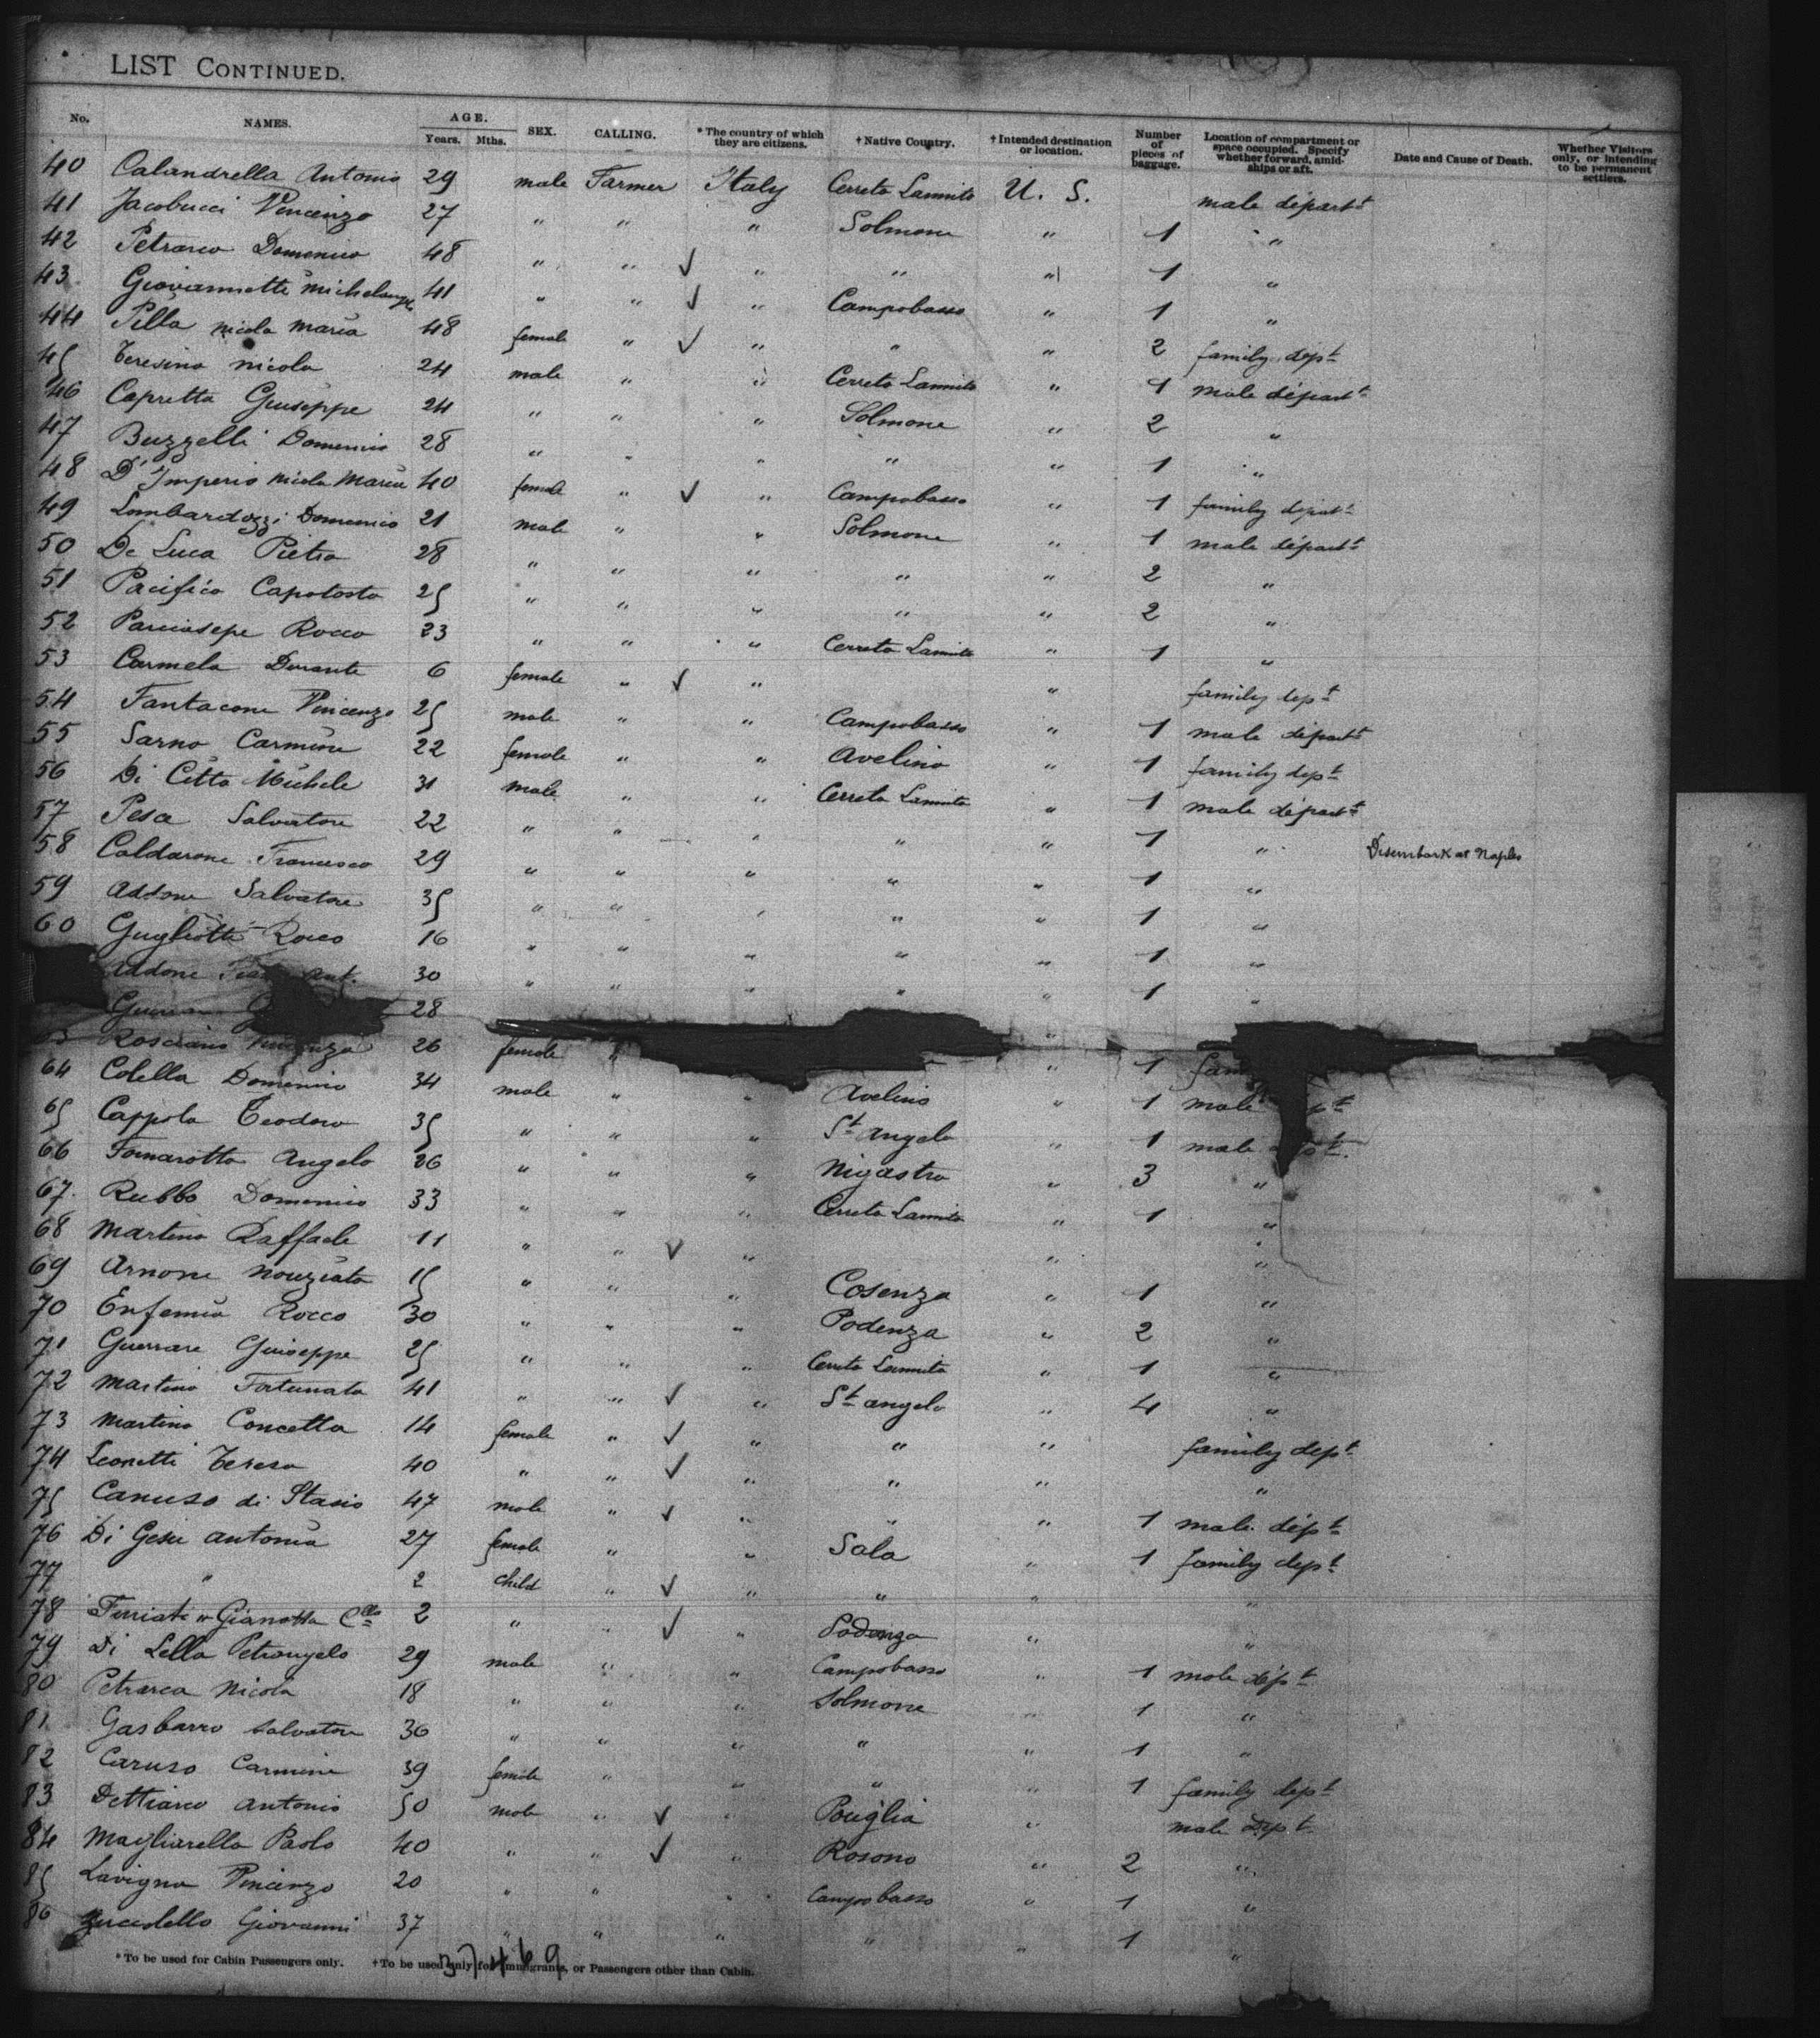 LIST CONTINUED.
No. NAMES. AGE. Years. Mths. SEX. CALLING. * The country of which they are citizens. † Native Country. † Intended destination or location. Number of pieces of baggage. Location of compartment or space occupied. Specify whether forward, amidships or aft. Date and Cause of Death. Whether Visitors only, or intending to be permanent settlers.
40 Calandrella Antonio 29 male Farmer Italy Cerreto Sannito U. S. male départt
41 Jacobucci Vincenzo 27 " " " Solmone " 1 "
42 Petrarca Domenico 48 " " ✓ " " " 1 "
43 Giovannetti Michelangelo 41 " " ✓ " Campobasso " 1 "
44 Pilla Nicola Maria 48 female " ✓ " " " 2 family dept
45 Teresino Nicola 24 male " " Cerreto Sannito " 1 male départt
46 Capretta Giuseppe 24 " " " Solmone " 2 "
47 Buzzelli Domenico 28 " " " " " 1 "
48 D'Imperio Nicola Maria 40 female " ✓ " Campobasso " 1 family départt
49 Lombardozzi Domenico 21 male " " Solmone " 1 male départt
50 De Luca Pietro 28 " " " " " 2 "
51 Pacifico Capotosto 25 " " " " " 2 "
52 Panciasepe Rocco 23 " " " Cerreto Sannito " 1 "
53 Carmela Durante 6 female " ✓ " " family dept
54 Fantacone Vincenzo 25 male " " Campobasso " 1 male départt
55 Sarno Carmine 22 female " " Avelino " 1 family dept
56 Di Citto Michele 31 male " " Cerreto Sannito " 1 male départt
57 Pesce Salvatore 22 " " " " " 1 " Disembark at Naples
58 Caldarone Francesco 29 " " " " " 1 "
59 Addone Salvatore 35 " " " " " 1 "
60 Gugliotti Rocco 16 " " " " " 1 "
Addone Ant. 30 " " " " " 1 "
28 "
63 Rosciano Vincenza 26 female " " 1 fam
64 Colella Domenico 34 male " " Avelino " 1 male pt
65 Cappola Teodoro 35 " " " St Angelo " 1 male dept.
66 Fomarotta Angelo 26 " " " Nigastro " 3 "
67. Rubbo Domenico 33 " " " Cerreto Sannito " 1 "
68 Martino Raffaele 11 " " ✓ " " "
69 Arnone Nouziato 15 " " " Cosenza " 1 "
70 Enfemia Rocco 30 " " " Podenza " 2 "
71 Guerrare Guiseppe 25 " " " Cerreto Sannito " 1 "
72 Martino Fortunato 41 " " ✓ " St Angelo " 4 "
73 Martino Concetta 14 female " ✓ " " " family dept
74 Leonetti Teresa 40 " " ✓ " " " "
75 Canuso di Stasio 47 male " ✓ " " " 1 male dépt
76 Di Gesu Antonia 27 female " " Sala " 1 family dept
77 " 2 child " ✓ " " " "
78 Gianotta 2 " " ✓ " Podenza " "
79 Di Lella Petrangelo 29 male " " Campobasso " 1 male dépt
80 Petrarca Nicola 18 " " " Solmone " 1 "
81 Gasbarro Salvatore 36 " " " " " 1 "
82 Caruso Carmine 39 female " " " " 1 family dept
83 Dettiarco Antonio 50 male " ✓ " Pouglia " male dept
84 Magliarella Paolo 40 " " ✓ " Rosono " 2 "
85 Lavigna Vincenzo 20 " " " Campobasso " 1 "
86 Giovanni 37 " " " " " 1 "
* To be used for Cabin Passengers only. † To be used only for Immigrants, or Passengers other than Cabin.